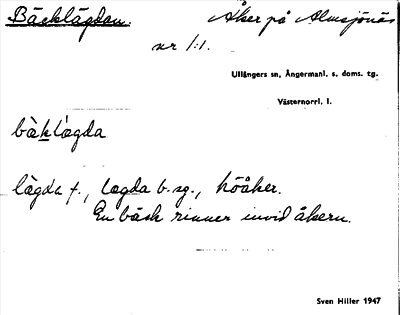 Bäcklägdan. Åker på Almsjönäs
nr 1:1.
Ullångers sn, Ångermanl. s. doms. tg.
Västernorrl. l.
bàklǽgda
lägda f., lægda b. sg., höåker.
En bäck rinner invid åkern.
Sven Hiller 1947